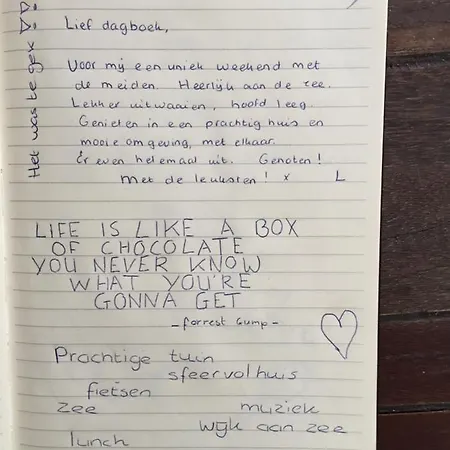 Lief dagboek,
Voor mij een uniek weekend met
de meiden. Heerlijk aan de zee.
Lekker uitwaaien, hoofd leeg.
Genieten in een prachtig huis en
mooie omgeving, met elkaar.
Er even helemaal uit. Genoten!
met de leuksten! x L
Het was te gek
LIFE IS LIKE A BOX
OF CHOCOLATE
YOU NEVER KNOW
WHAT YOU'RE
GONNA GET
- Forrest Gump -
Prachtige tuin
sfeervol huis
fietsen
zee muziek
wijk aan zee
lunch